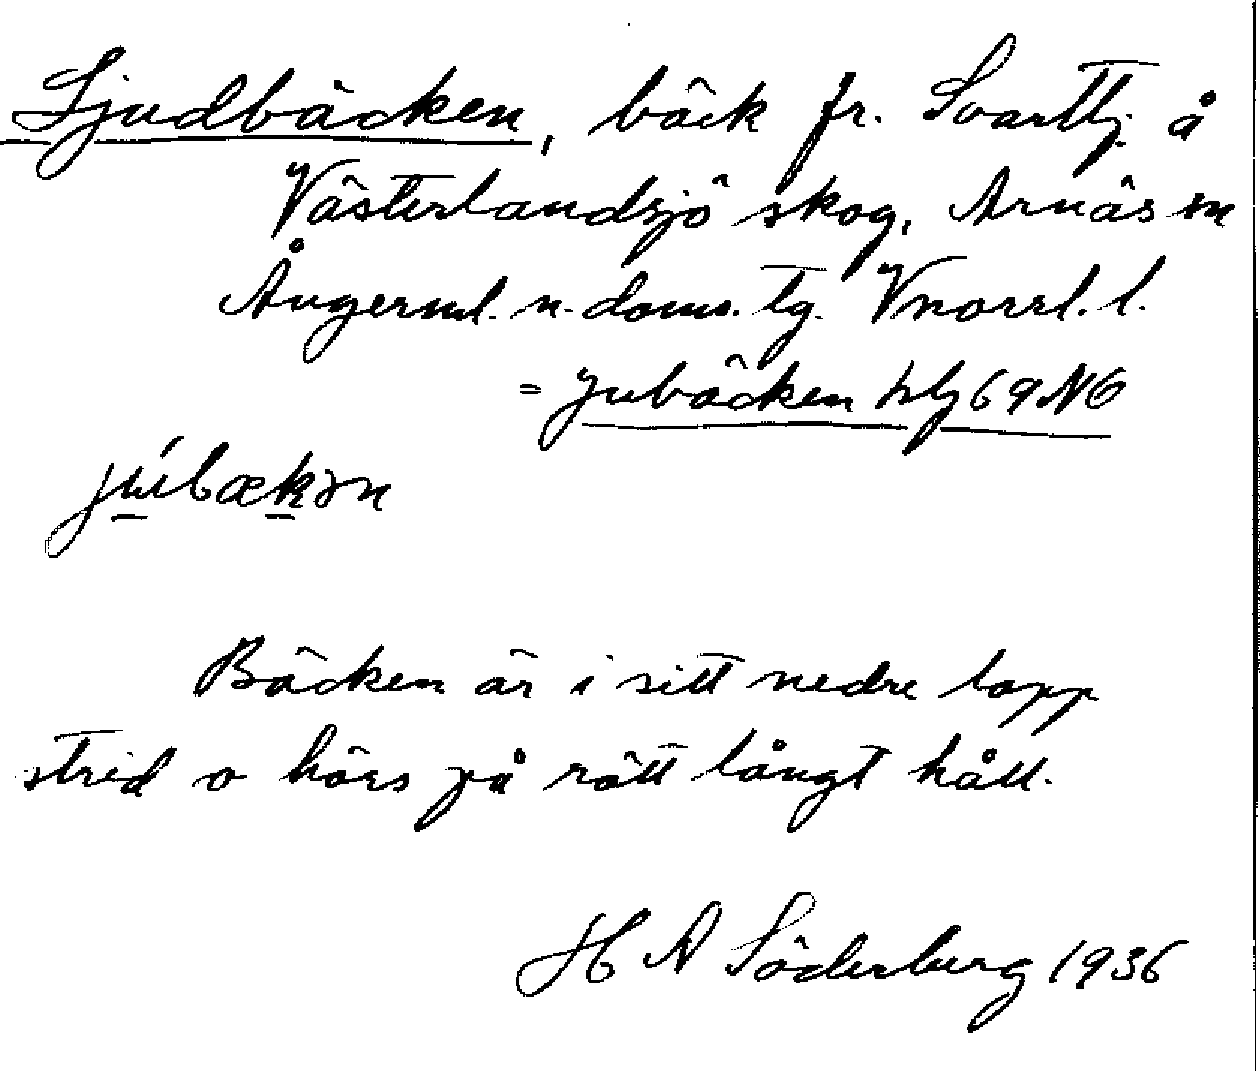 Ljudbäcken, bäck fr. Svarttj. å
Västerlandsjö skog, Arnäs sn
Ångerml. n. doms. tg. Vnorrl. l.
= Jubäcken hlj 69 NO
júbækən
Bäcken är i sitt nedre lopp
strid o hörs på rätt långt håll.
H A Söderberg 1936